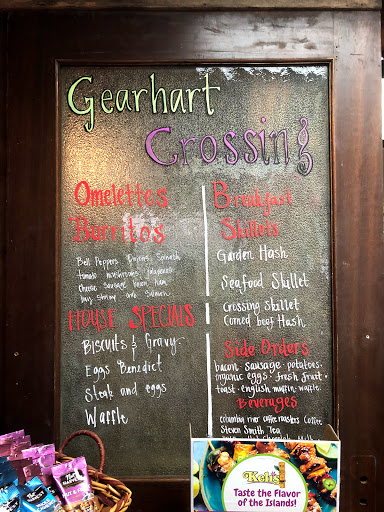 Gearhart
Crossing
Omelettes
Burritos
Bell Peppers Onions Spinach
tomato mushrooms jalapenos
cheese sausage bacon ham
bay shrimp and Salmon
HOUSE SPECIALS
BISCUITS & Gravy
Eggs Benedict
Steak and eggs
Waffle
Breakfast
Skillets
Garden Hash
Seafood Skillet
Crossing Skillet
Corned beef Hash
Side Orders
bacon • sausage • potatoes •
organic eggs • fresh fruit •
toast • english muffin • waffle •
Beverages
columbia river coffee roasters Coffee
Steven Smith Tea
Hot Chocolate Milk
Keli's
Taste the Flavor
of the Islands!